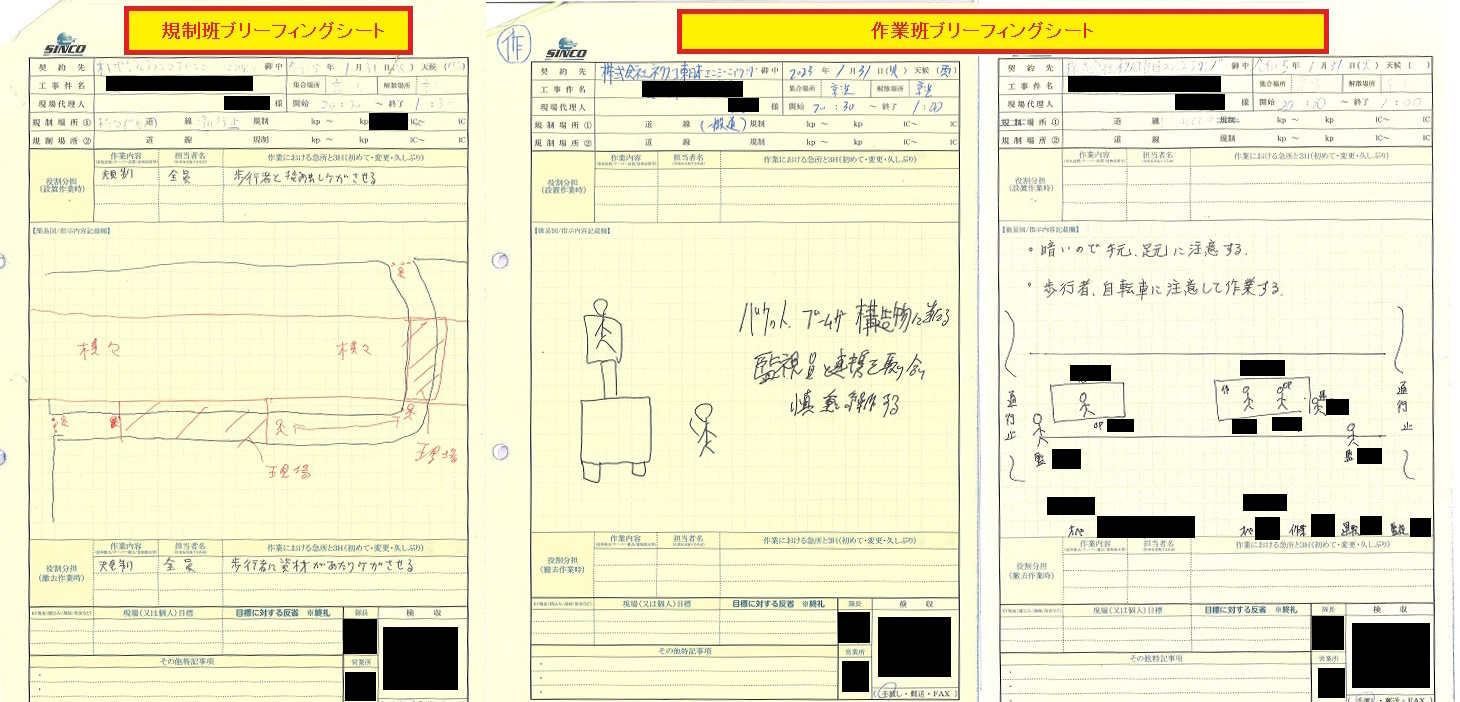 規制班ブリーフィングシート
SINCO
契約先 御中 年 1月31日(火) 天候( )
工事件名 集合場所 解散場所
現場代理人 様 開始 20:30 ～ 終了 1:30
規制場所① 道 線 規制 kp ～ kp IC～ IC
規制場所② 道 線 規制 kp ～ kp IC～ IC
作業内容 担当者名 作業における急所と3H(初めて・変更・久しぶり)
役割分担
(設置作業時)
規制 全員 歩行者と接触しケガさせる
【簡易図/指示内容記載欄】
現場
現場
作業内容 担当者名 作業における急所と3H(初めて・変更・久しぶり)
役割分担
(撤去作業時)
規制 全員 歩行者に資材があたりケガさせる
現場(又は個人)目標 目標に対する反省 ※終礼 隊長 検収
その他特記事項
営業所
作業班ブリーフィングシート
作
SINCO
契約先 株式会社ネクスコ東日本エンジニアリング 御中 2023年 1月31日(火) 天候(雪)
工事件名 集合場所 京浜 解散場所 京浜
現場代理人 様 開始 20:30 ～ 終了 1:00
規制場所① 道 線 (般道) 規制 kp ～ kp IC～ IC
規制場所② 道 線 規制 kp ～ kp IC～ IC
作業内容 担当者名 作業における急所と3H(初めて・変更・久しぶり)
役割分担
(設置作業時)
【簡易図/指示内容記載欄】
バケット、ブームが構造物に当たる
監視員と連携を取り合い
慎重に操作する
作業内容 担当者名 作業における急所と3H(初めて・変更・久しぶり)
役割分担
(撤去作業時)
現場(又は個人)目標 目標に対する反省 ※終礼 隊長 検収
その他特記事項
営業所
(手渡し・郵送・FAX)
契約先 御中 令和5年 1月31日(火) 天候( )
工事件名 集合場所 解散場所
現場代理人 様 開始 20:30 ～ 終了 1:00
規制場所① 道 線 規制 kp ～ kp IC～ IC
規制場所② 道 線 規制 kp ～ kp IC～ IC
作業内容 担当者名 作業における急所と3H(初めて・変更・久しぶり)
役割分担
(設置作業時)
【簡易図/指示内容記載欄】
・暗いので手元、足元に注意する。
・歩行者、自転車に注意して作業する。
通行止
通行止
作 OP
OP
監
監
オペ オペ 作業 運転 監視
作業内容 担当者名 作業における急所と3H(初めて・変更・久しぶり)
役割分担
(撤去作業時)
現場(又は個人)目標 目標に対する反省 ※終礼 隊長 検収
その他特記事項
営業所
(手渡し・郵送・FAX)